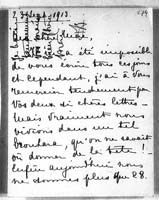 2 Sept. 1913.
été impossible
de vous écrire tous ces jours
et cependant, j'ai à vous
remercier tendrement pour
vos deux si chères lettres.
Mais vraiment nous
vivions dans un tel
brouhaha, qu'on ne savait
où donner de la tête!
Enfin aujourd'hui nous
ne sommes plus que 28.